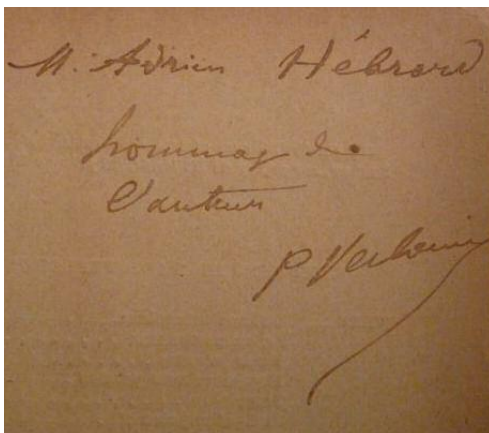 M. Adrien Hébrard
hommage de
l'auteur
P Verlaine